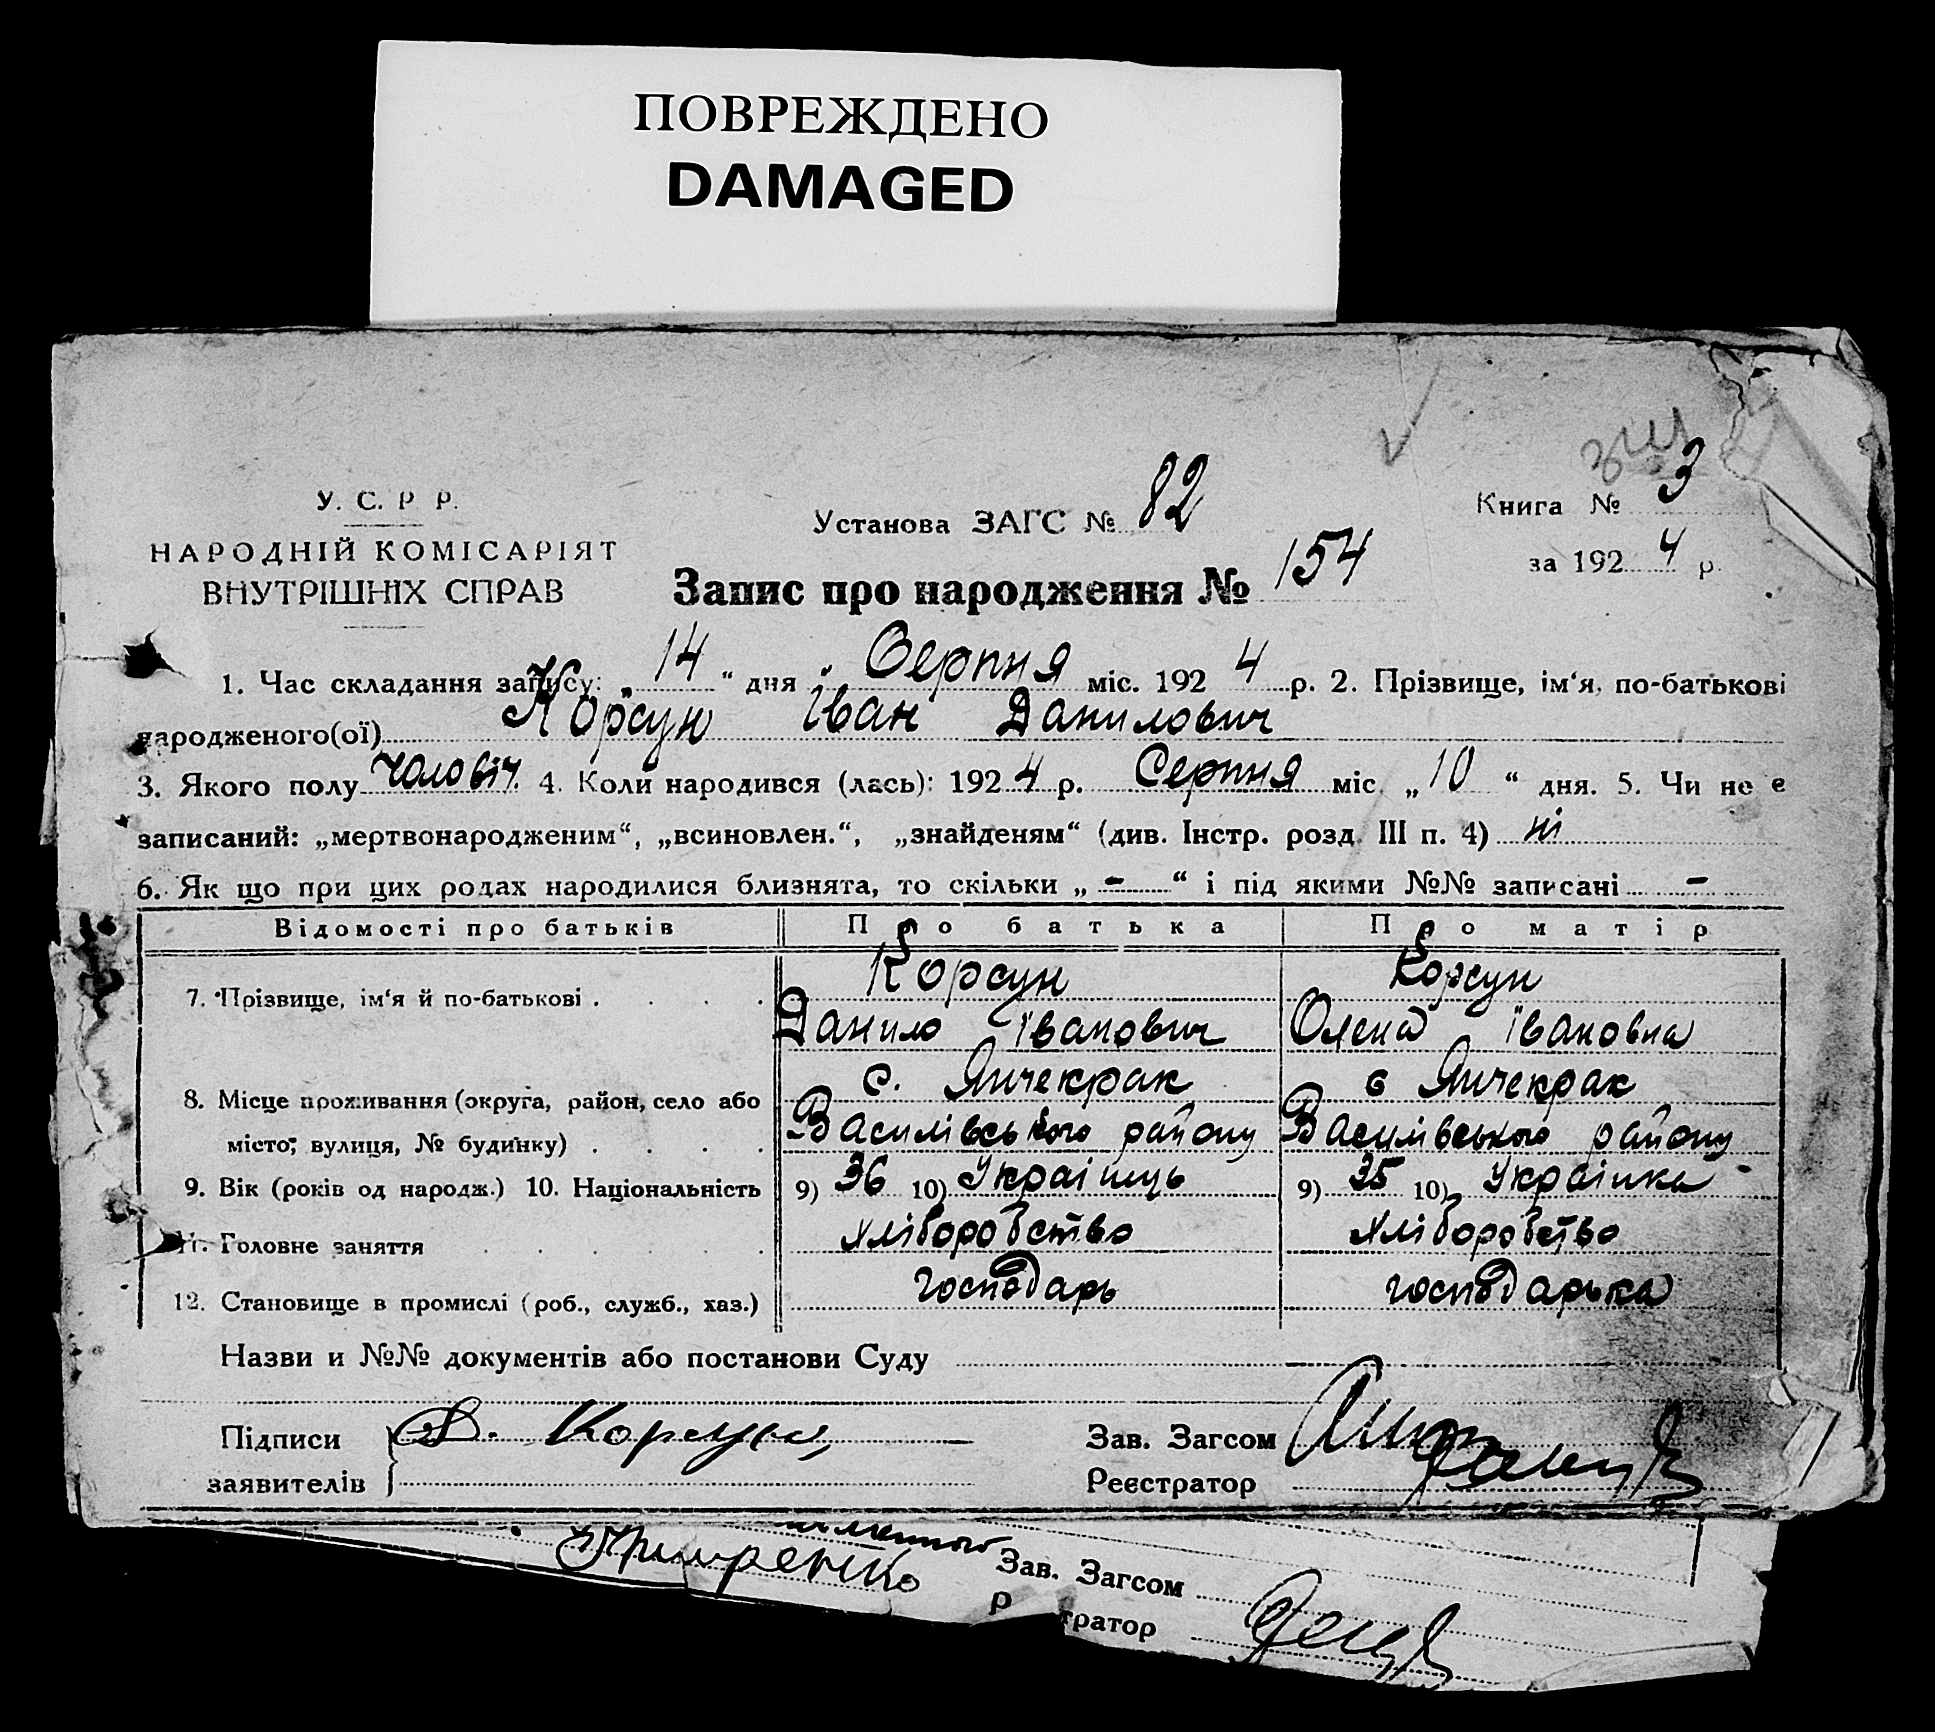 ПОВРЕЖДЕНО
DAMAGED
У. С. Р. Р.
НАРОДНІЙ КОМІСАРІЯТ
ВНУТРІШНІХ СПРАВ
Установа ЗАГС № 82
Книга № 3
за 1924 р.
Запис про народження № 154
1. Час складання запису: „ 14 “ дня „ Серпня міс. 1924 р. 2. Прізвище, ім‘я, по-батькові
народженого(ої) Корсун Іван Данилович
3. Якого полу чоловіч. 4. Коли народився (лась): 1924 р. Серпня міс. „ 10 “ дня. 5. Чи не є
записаний: „мертвонародженим“, „всиновлен.“, „знайденям“ (див. Інстр. розд. III п. 4) ні
6. Як що при цих родах народилися близнята, то скільки „ - “ і під якими №№ записані -
Відомості про батьків Про батька Про матір
7. Прізвище, ім‘я й по-батькові . . . . Корсун Корсун
Данило Іванович Олена Івановна
8. Місце проживання (округа, район, село або с. Янчекрак с Янчекрак
місто; вулиця, № будинку) . . . . Василівського району Василівського району
9. Вік (років од народж.) 10. Національність 9) 36 10) Українець 9) 35 10) Українка
11. Головне заняття . . . . . . Хліборобство Хліборобство
12. Становище в промислі (роб., служб., хаз.) господарь господарька
Назви и №№ документів або постанови Суду
Підписи Д. Корсун Зав. Загсом
заявителів Реєстратор
Зав. Загсом
Р тратор